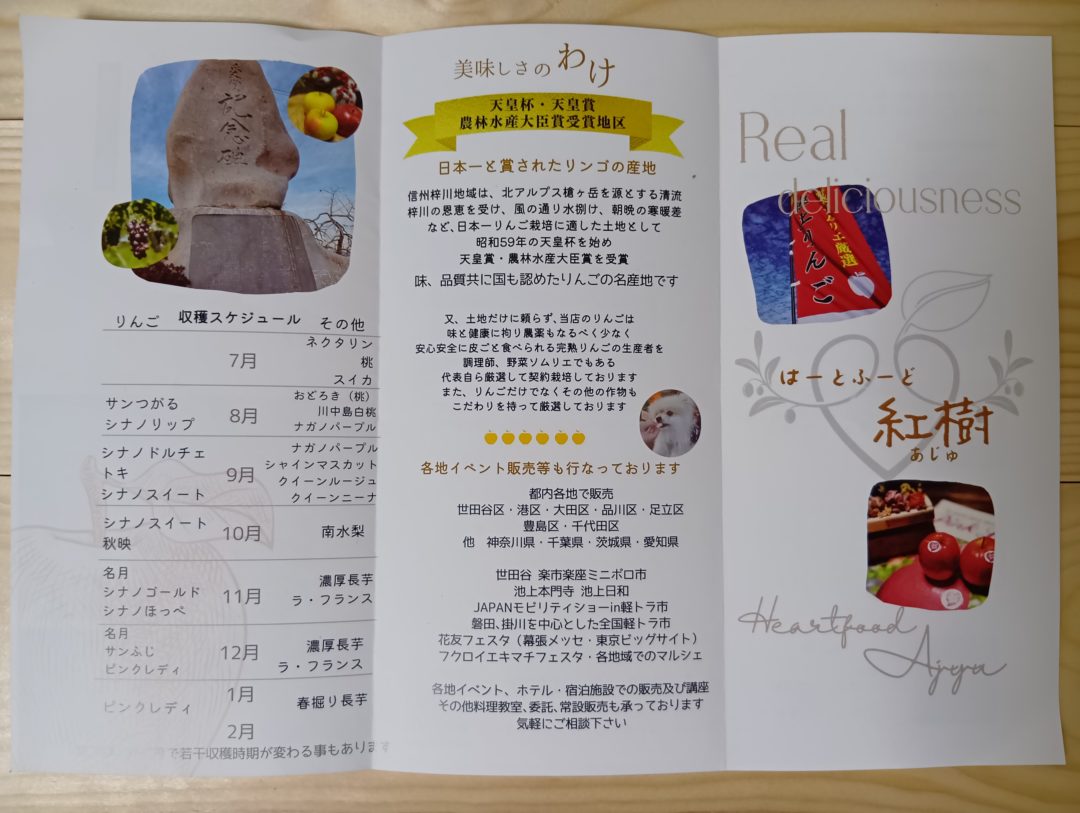 記念碑
りんご 収穫スケジュール その他
7月
ネクタリン
桃
スイカ
サンつがる
シナノリップ
8月
おどろき（桃）
川中島白桃
ナガノパープル
シナノドルチェ
トキ
シナノスイート
9月
ナガノパープル
シャインマスカット
クイーンルージュ
クイーンニーナ
シナノスイート
秋映
10月
南水梨
名月
シナノゴールド
シナノほっぺ
11月
濃厚長芋
ラ・フランス
名月
サンふじ
ピンクレディ
12月
濃厚長芋
ラ・フランス
ピンクレディ
1月
2月
春掘り長芋
で若干収穫時期が変わる事もあります
美味しさのわけ
天皇杯・天皇賞
農林水産大臣賞受賞地区
日本一と賞されたリンゴの産地
信州梓川地域は、北アルプス槍ヶ岳を源とする清流
梓川の恩恵を受け、風の通り水捌け、朝晩の寒暖差
など、日本一りんご栽培に適した土地として
昭和59年の天皇杯を始め
天皇賞・農林水産大臣賞を受賞
味、品質共に国も認めたりんごの名産地です
又、土地だけに頼らず、当店のりんごは
味と健康に拘り農薬もなるべく少なく
安心安全に皮ごと食べられる完熟りんごの生産者を
調理師、野菜ソムリエでもある
代表自ら厳選して契約栽培しております
また、りんごだけでなくその他の作物も
こだわりを持って厳選しております
各地イベント販売等も行なっております
都内各地で販売
世田谷区・港区・大田区・品川区・足立区
豊島区・千代田区
他 神奈川県・千葉県・茨城県・愛知県
世田谷 楽市楽座ミニボロ市
池上本門寺 池上日和
JAPANモビリティショーin軽トラ市
磐田、掛川を中心とした全国軽トラ市
花友フェスタ（幕張メッセ・東京ビッグサイト）
フクロイエキマチフェスタ・各地域でのマルシェ
各地イベント、ホテル・宿泊施設での販売及び講座
その他料理教室、委託、常設販売も承っております
気軽にご相談下さい
Real
deliciousness
リエ厳選
りんご
はーとふーど
紅樹
あじゅ
Heartfood
Ajyu